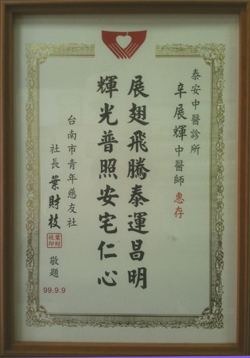 泰安中醫診所
卓展輝中醫師惠存
展翅飛騰泰運昌明
輝光普照安宅仁心
台南市青年慈友社
社長葉財枝敬題
99.9.9